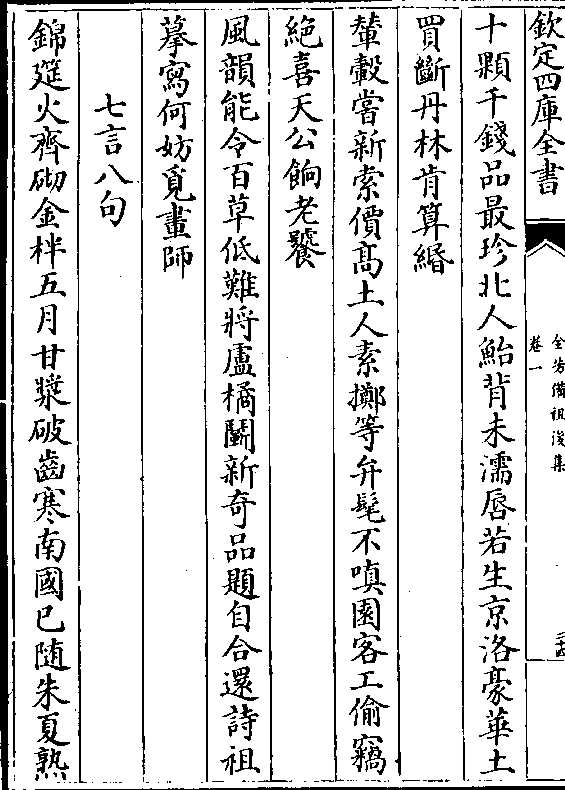 欽定四庫全書
全芳備祖後集
卷一
三十四
十顆千錢品最珍北人鮐背未濡唇若生京洛豪華土
買斷丹林肯算緡
輦轂嘗新索價髙土人素擲等弁髦不嗔園客工偷竊
絶喜天公餉老饕
風韻能令百草低難將盧橘鬭新奇品題自合還詩祖
摹寫何妨覓畫師
七言八句
錦筵火齊砌金柈五月甘漿破齒寒南國已随朱夏熟